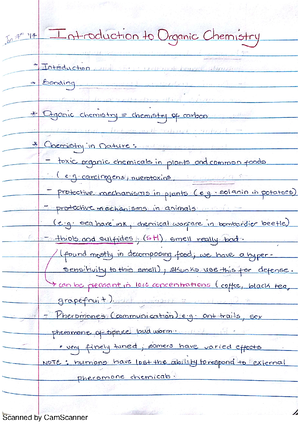 Introduction to Organic Chemistry
- Introduction
- Bonding
* Organic chemistry = chemistry of carbon
* Chemistry in Nature:
- toxic organic chemicals in plants and common foods
(e.g. carcinogens, neurotoxins.
- protective mechanisms in plants (e.g. solanin in potatoes)
- protective mechanisms in animals
(e.g. sea hare ink, chemical warfare in bombardier beetle)
- thiols and sulfides; (S-H) smell really bad.
(found mostly in decomposing food, we have a hyper-
sensitivity to this smell), skunks use this for defense.
can be present in low concentrations (coffee, black tea,
grapefruit).
- Pheromones (communication) e.g. ant trails, sex
pheromone of spruce bud worm.
• very finely tuned, isomers have varied effects
NOTE: humans have lost the ability to respond to external
pheromone chemicals.
Scanned by CamScanner